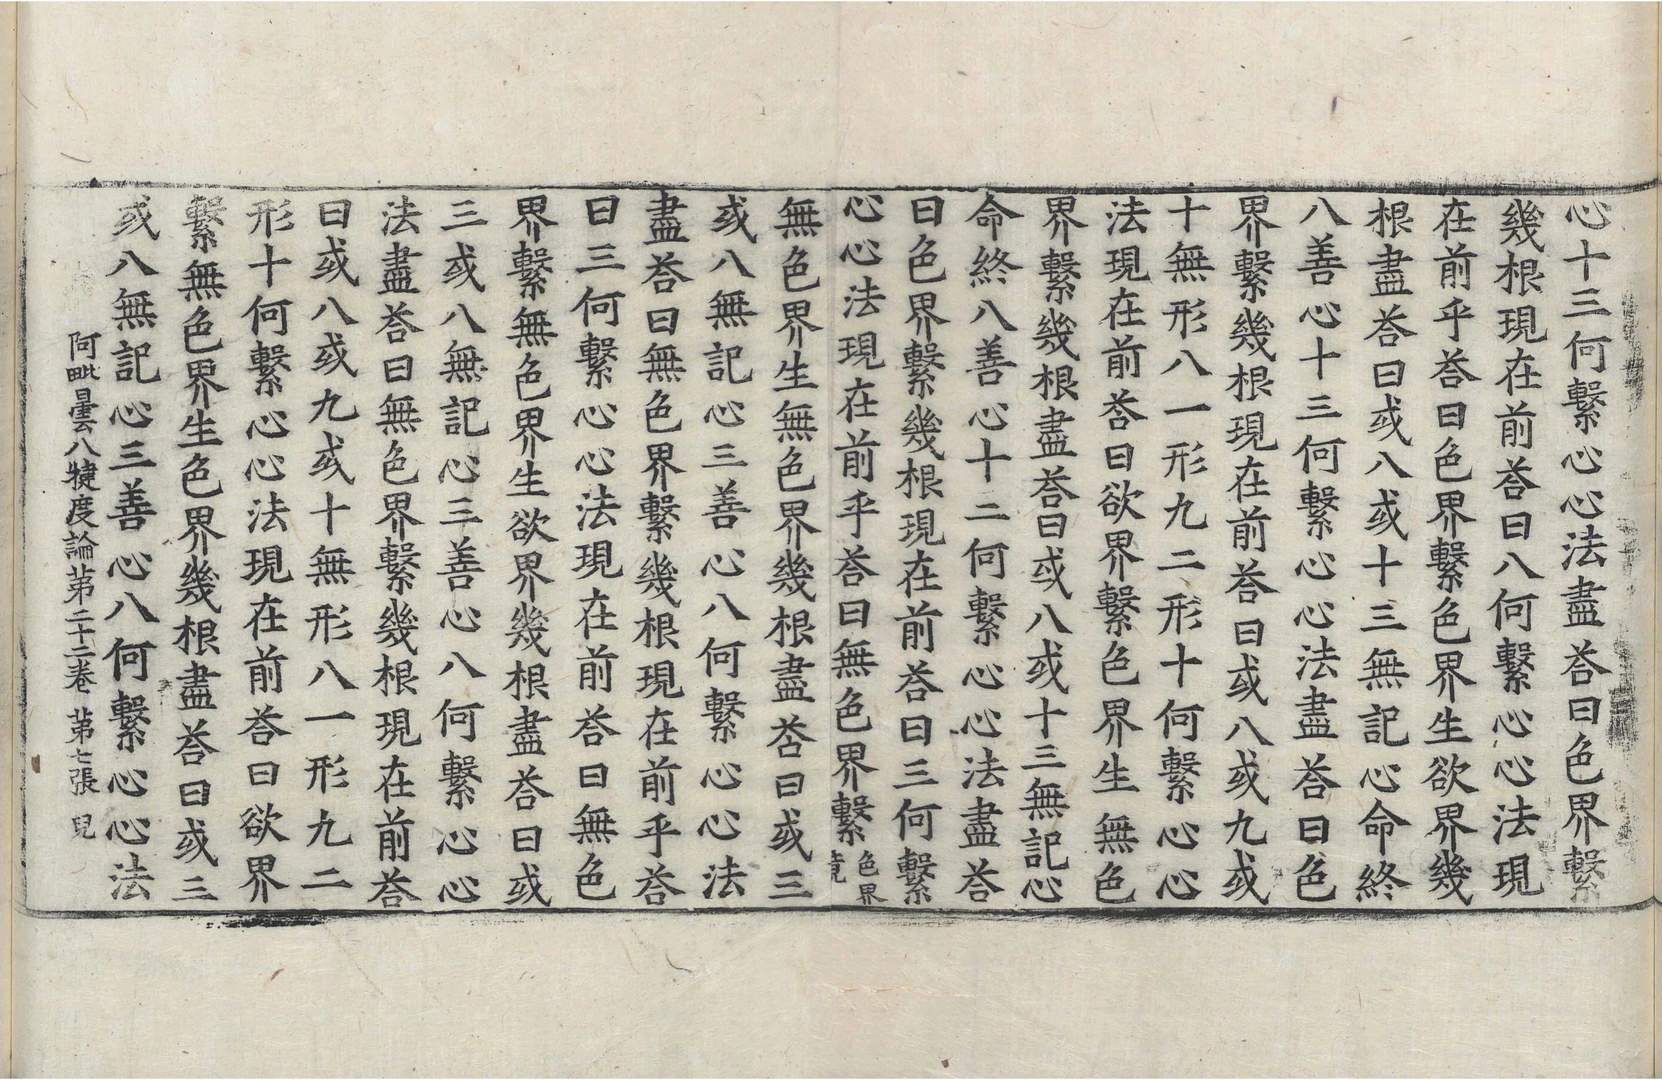 心十三何繫心心法盡荅曰色界繫
幾根現在前荅曰八何繫心心法現
在前乎荅曰色界繫色界生欲界幾
根盡荅曰或八或十三無記心命終
八善心十三何繫心心法盡荅曰色
界繫幾根現在前荅曰或八或九或
十無形八一形九二形十何繫心心
法現在前荅曰欲界繫色界生無色
界繫幾根盡荅曰或八或十三無記心
命終八善心十二何繫心心法盡荅
曰色界繫幾根現在前荅曰三何繫
心心法現在前乎荅曰無色界繫色界竟
無色界生無色界幾根盡荅曰或三
或八無記心三善心八何繫心心法
盡荅曰無色界繫幾根現在前乎荅
曰三何繫心心法現在前荅曰無色
界繫無色界生欲界幾根盡荅曰或
三或八無記心三善心八何繫心心
法盡荅曰無色界繫幾根現在前荅
曰或八或九或十無形八一形九二
形十何繫心心法現在前荅曰欲界
繫無色界生色界幾根盡荅曰或三
或八無記心三善心八何繫心心法
阿毗曇八犍度論第二十二卷 第七張 兒